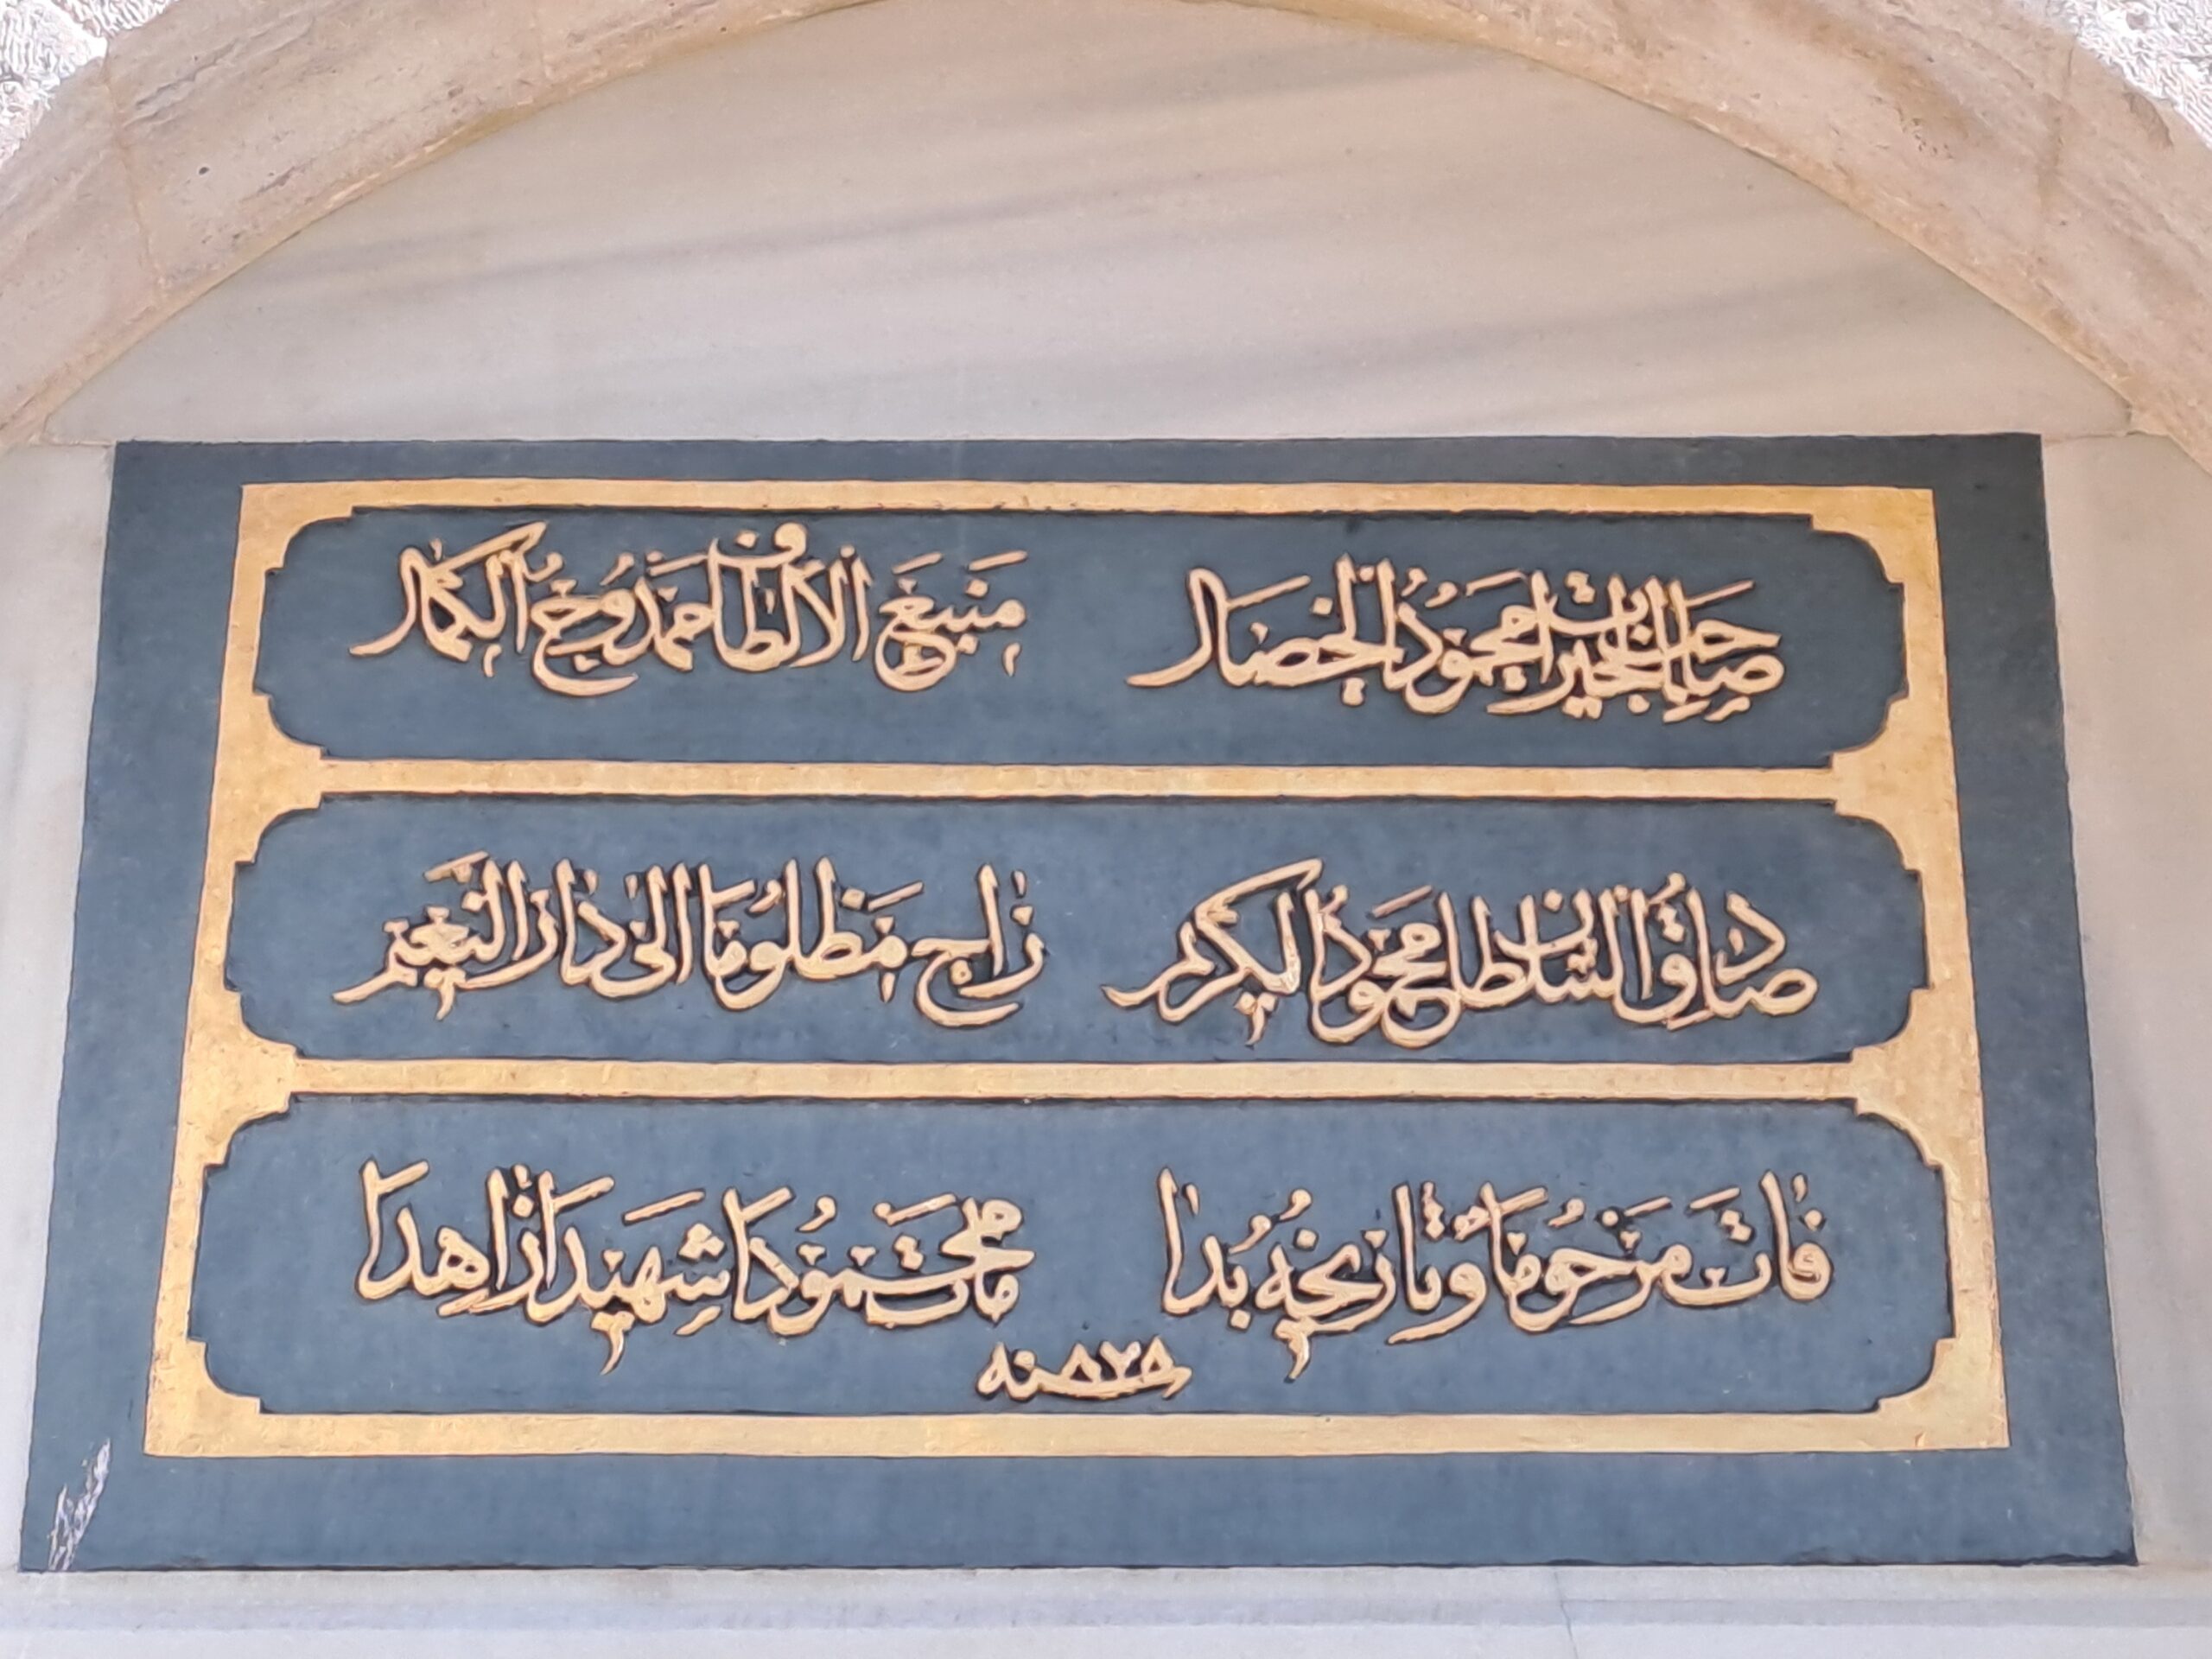 صاحب الخيرات محمود الخصال منبع الالطاف ممدوح الكمال
صادق السلطان محمود الكريم راح مظلوما الى دار النعيم
فات مرحوما وتاريخه بدا مات محمودا شهيدا زاهدا
سنه ٨٧٨